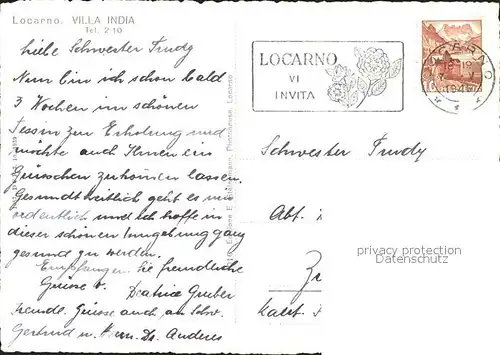 Locarno. VILLA INDIA
Tel. 2 10
liebe Schwester Trudy
Nun bin ich schon bald
3 Wochen im schönen
Tessin zur Erholung und
möchte auch Ihnen ein
Grüsschen zukommen lassen.
Gesundheitlich geht es mir
ordentlich und ich hoffe in
dieser schönen Umgebung ganz
gesund zu werden.
Empfangen Sie freundliche
Grüsse v. Beatrice Gruber
freundl. Grüsse auch an Schw.
Gertrud u. Herrn Dr. Anderes
Photohaus, Locarno
LOCARNO
VI
INVITA
LOCARNO
1946
10
Schwester Trudy
Abt.
privacy protection
Datenschutz